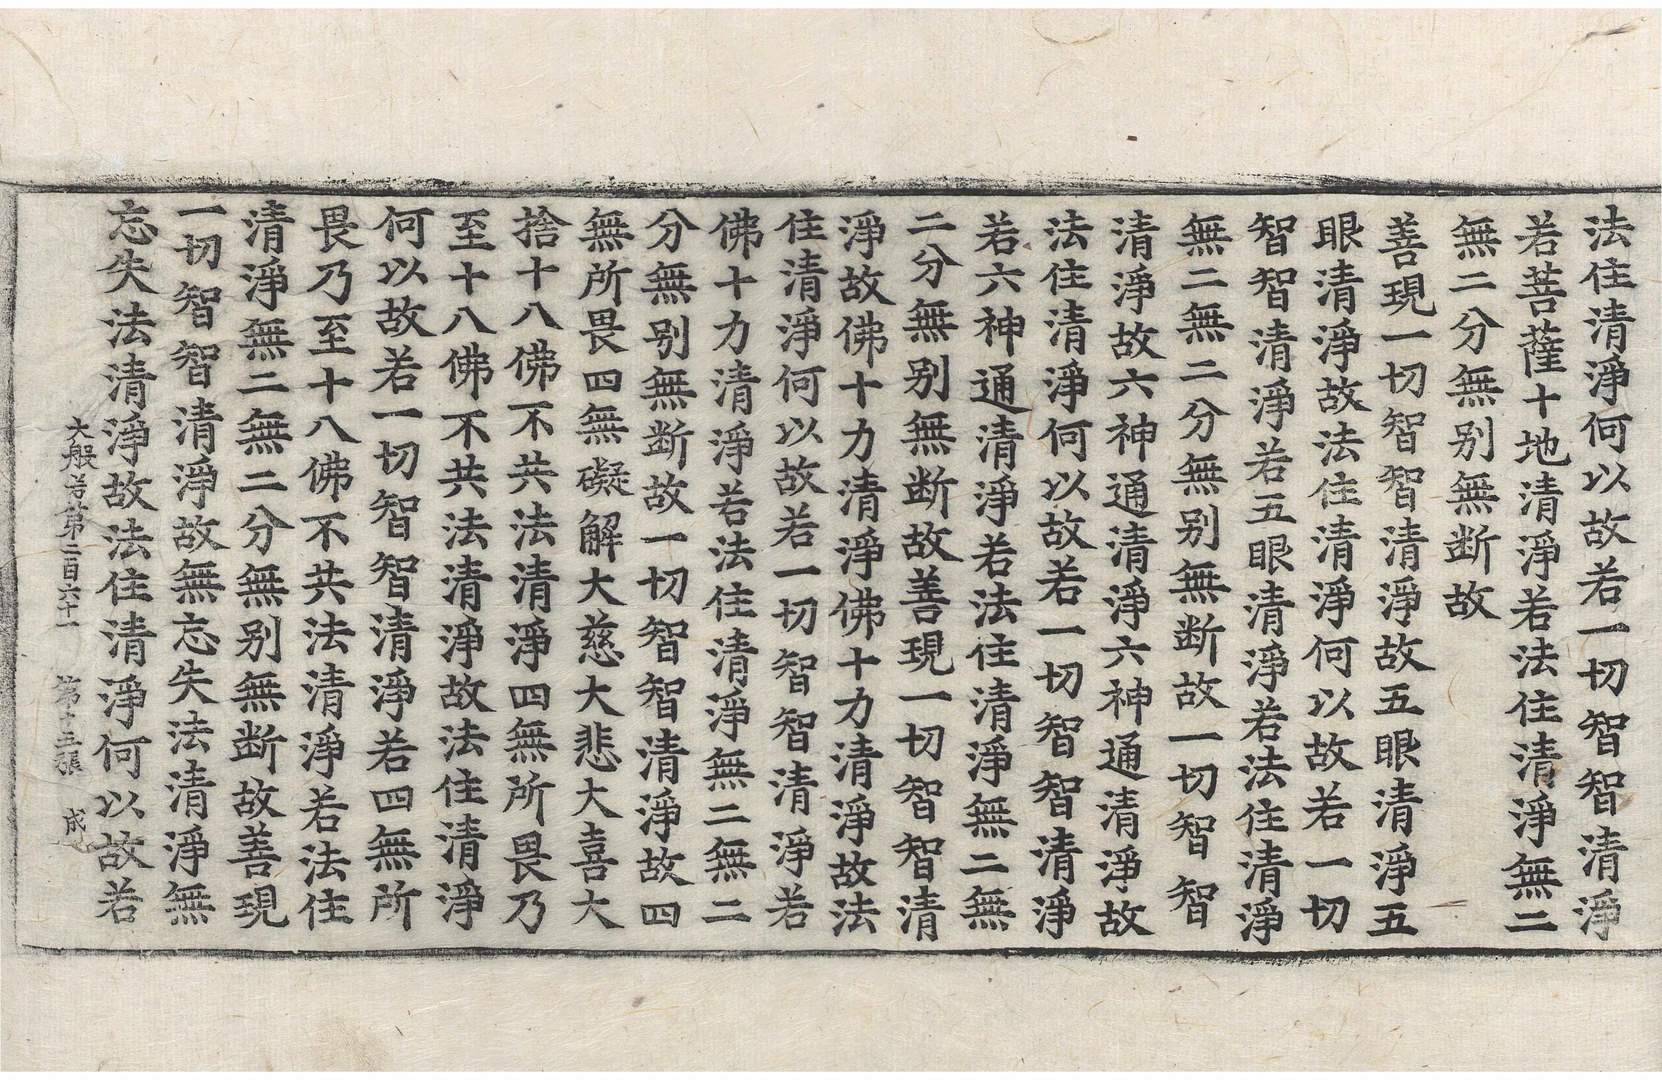 法住清淨何以故若一切智智清淨
若菩薩十地清淨若法住清淨無二
無二分無别無断故
善現一切智智清淨故五眼清淨五
眼清淨故法住清淨何以故若一切
智智清淨若五眼清淨若法住清淨
無二無二分無别無断故一切智智
清淨故六神通清淨六神通清淨故
法住清淨何以故若一切智智清淨
若六神通清淨若法住清淨無二無
二分無别無断故善現一切智智清
淨故佛十力清淨佛十力清淨故法
住清淨何以故若一切智智清淨若
佛十力清淨若法住清淨無二無二
分無别無断故一切智智清淨故四
無所畏四無礙解大慈大悲大喜大
捨十八佛不共法清淨四無所畏乃
至十八佛不共法清淨故法住清淨
何以故若一切智智清淨若四無所
畏乃至十八佛不共法清淨若法住
清淨無二無二分無别無断故善現
一切智智清淨故無忘失法清淨無
忘失法清淨故法住清淨何以故若
大般若第二百六十一 第十三張 成